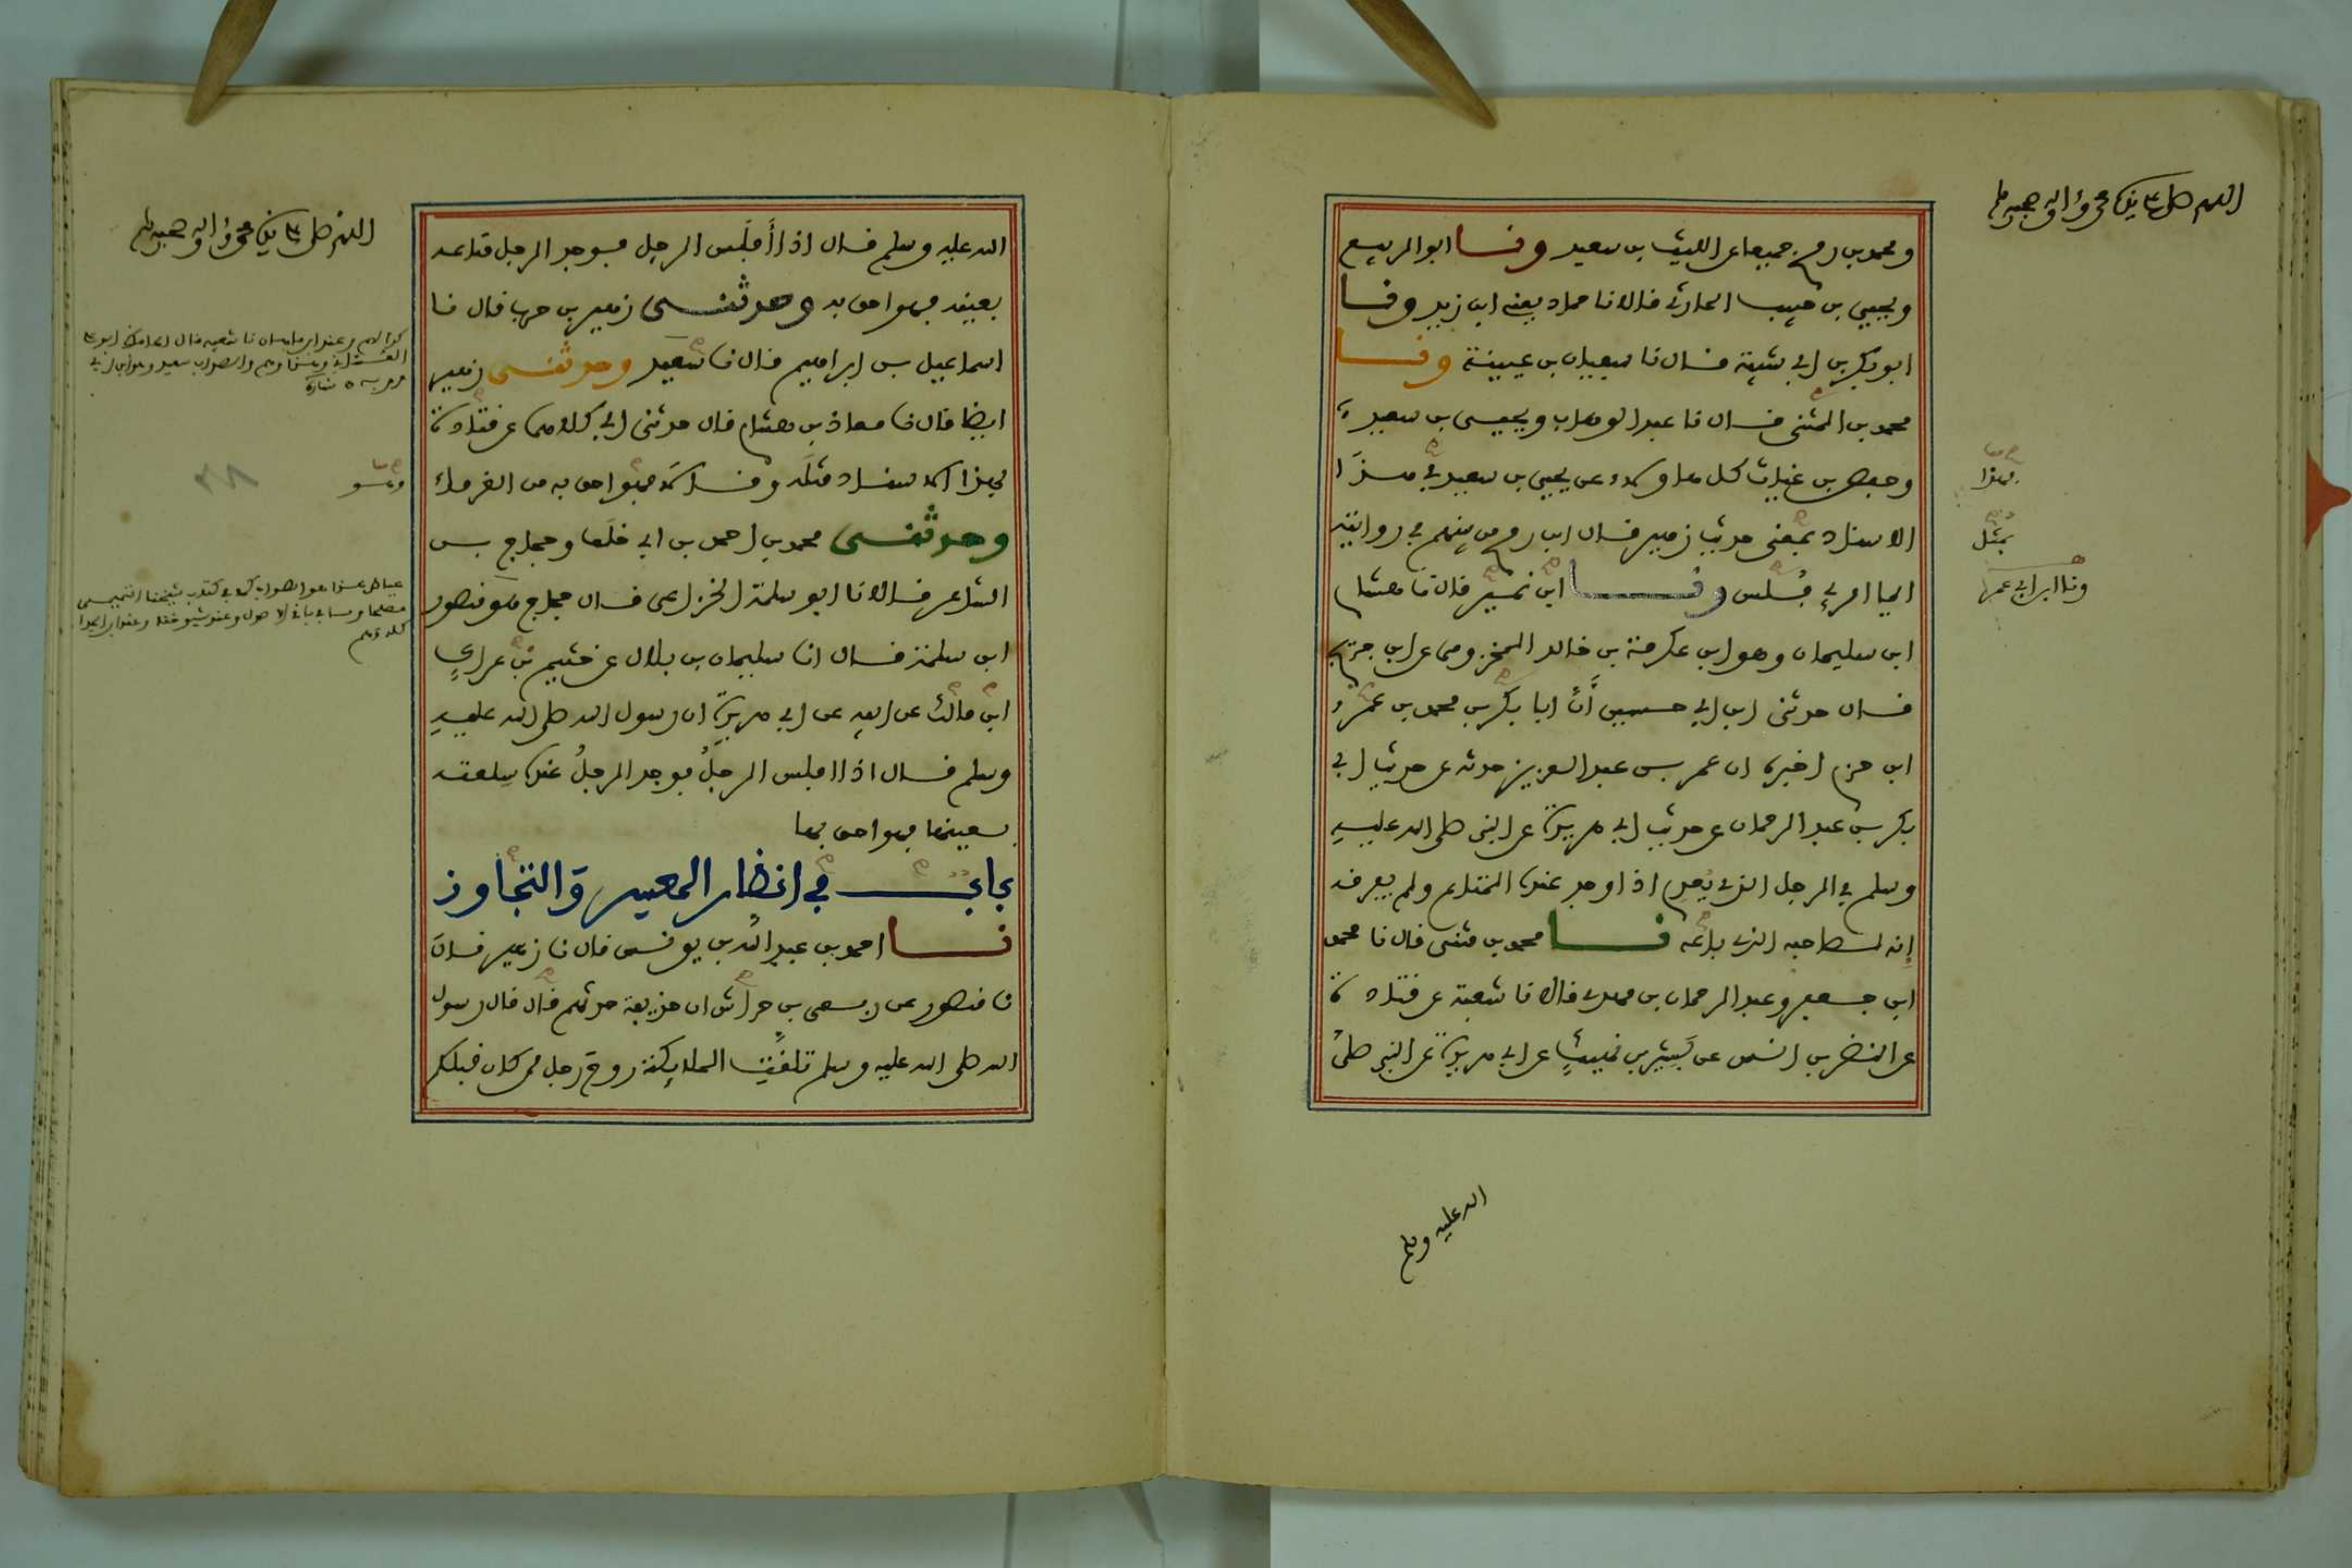 اللهم صل على سيدنا محمد وآله وصحبه وسلم
ومحمد بن رمح جميعا عن الليث بن سعيد ونا ابو الربيع
ويحيى بن حبيب الحارثي قالا نا حماد يعني ابن زيد ونا
ابو بكر بن ابي شيبة قال نا سفيان بن عيينة ونا
محمد بن المثنى قال نا عبد الوهاب ويحيى بن سعيد
وحفص بن غياث كل هاولاء عن يحيى بن سعيد في هذا
الاسناد بمعنى حديث زهير قال ابن رمح من بينهم في روايته
ايما امرئ فلس ونا ابن نمير قال نا هشام
ابن سليمان وهو ابن عكرمة بن خالد المخزومي عن ابن جريج
قال حدثني ابن ابي حسين أن ابا بكر بن محمد بن عمرو
ابن حزم اخبره ان عمر بن عبد العزيز حدثه عن حديث ابي
بكر بن عبد الرحمان عن حديث ابي هريرة عن النبي صلى الله عليه
وسلم في الرجل الذي يُعدم اذا وجد عنده المتاع ولم يفرقه
إنه لصاحبه الذي باعه نا محمد بن مثنى قال نا محمد
ابن جعفر وعبد الرحمان بن مهدي قالا نا شعبة عن قتادة
عن النضر بن انس عن بَشير بن نهيكٍ عن ابي هريرة عن النبي صلى
بهذا
بمثل
ونا ابن ابي عمر
الله عليه وسلم
اللهم صل على سيدنا محمد وآله وصحبه وسلم
الله عليه وسلم قال اذا أفلَس الرجل فوجد الرجل متاعه
بعينه فهو احق به وحدثنى زهير بن حرب قال نا
اسماعيل بن ابراهيم قال نا سَعيد وحدثنى زهير
ايضا قال نا معاذ بن هشام قال حدثني ابي كلاهما عن قتادة
بهذا الاسناد مثلَه وقالا فهو احق به من الغرماء
وحدثنى محمد بن احمد بن ابي خلَف وحجاج بن
الشاعر قالا نا ابو سلمة الخزاعي قال حجاج هو منصور
ابن سلمة قال انا سليمان بن بلال عن خثيم بن عراكٍ
ابن مالك عن ابيه عن ابي هريرة ان رسول الله صلى الله عليه
وسلم قال اذا افلس الرجلُ فوجد الرجلُ عنده سِلعته
بعينها فهو احق بها
باب في انظار المعسر والتجاوز
نا احمد بن عبد الله بن يونس قال نا زهير قال
نا منصور عن ربعي بن حراش ان حذيفة حدثهم قال قال رسول
الله صلى الله عليه وسلم تلقت الملايكة روح رجل ممن كان قبلكم